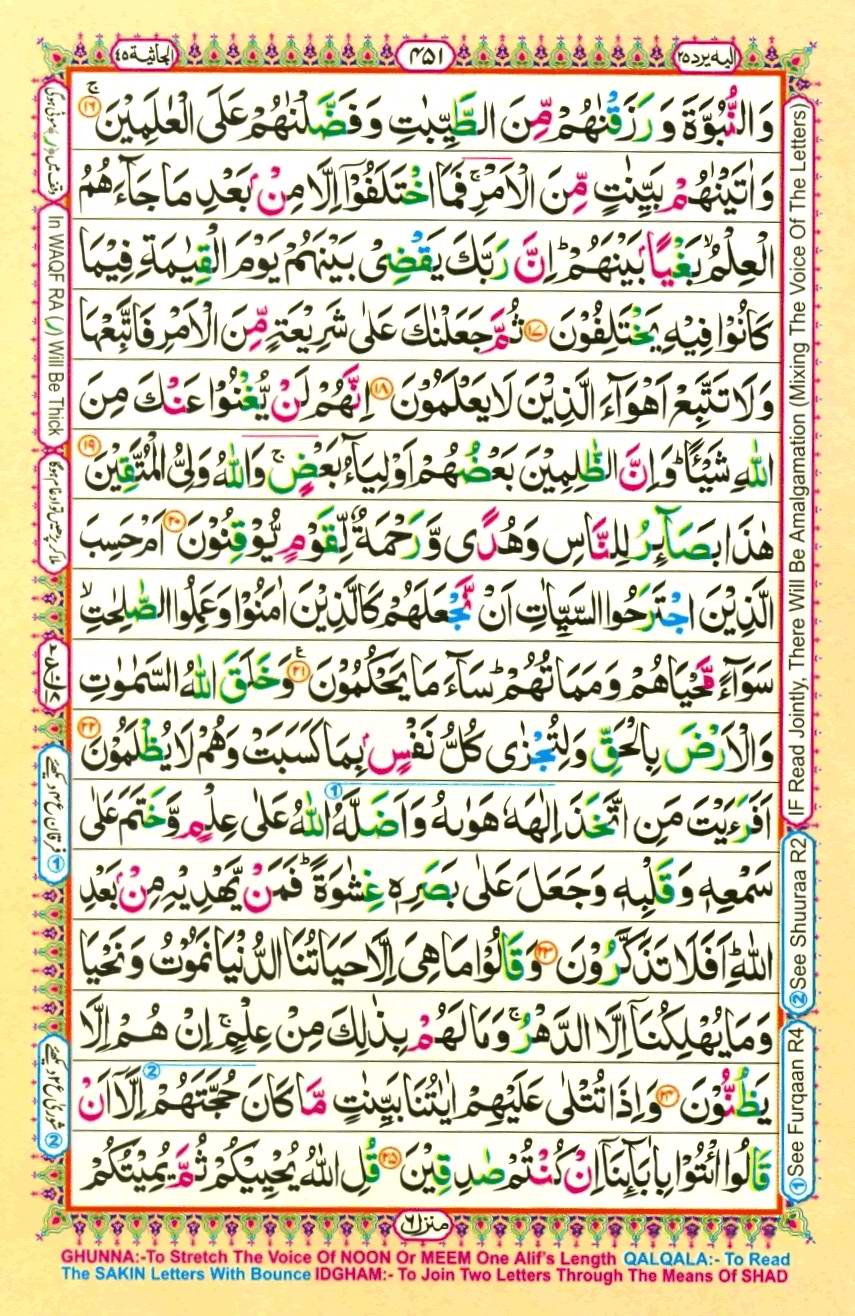 اليه يرد ٢٥
٤٥١
الجاثية ٤٥
وَالنُّبُوَّةَ وَرَزَقْنٰهُمْ مِّنَ الطَّيِّبٰتِ وَفَضَّلْنٰهُمْ عَلَى الْعٰلَمِيْنَ ۚ ۱۶
وَاٰتَيْنٰهُمْ بَيِّنٰتٍ مِّنَ الْاَمْرِ ۚ فَمَا اخْتَلَفُوْۤا اِلَّا مِنْۢ بَعْدِ مَا جَآءَهُمُ
الْعِلْمُ ۙ بَغْيًاۢ بَيْنَهُمْ ؕ اِنَّ رَبَّكَ يَقْضِىْ بَيْنَهُمْ يَوْمَ الْقِيٰمَةِ فِيْمَا
كَانُوْا فِيْهِ يَخْتَلِفُوْنَ ۱۷ ثُمَّ جَعَلْنٰكَ عَلٰى شَرِيْعَةٍ مِّنَ الْاَمْرِ فَاتَّبِعْهَا
وَلَا تَتَّبِعْ اَهْوَآءَ الَّذِيْنَ لَا يَعْلَمُوْنَ ۱۸ اِنَّهُمْ لَنْ يُّغْنُوْا عَنْكَ مِنَ
اللّٰهِ شَيْـًٔا ؕ وَاِنَّ الظّٰلِمِيْنَ بَعْضُهُمْ اَوْلِيَآءُ بَعْضٍ ۚ وَاللّٰهُ وَلِىُّ الْمُتَّقِيْنَ ۱۹
هٰذَا بَصَآئِرُ لِلنَّاسِ وَهُدًى وَّرَحْمَةٌ لِّقَوْمٍ يُّوْقِنُوْنَ ۲۰ اَمْ حَسِبَ
الَّذِيْنَ اجْتَرَحُوا السَّيِّاٰتِ اَنْ نَّجْعَلَهُمْ كَالَّذِيْنَ اٰمَنُوْا وَعَمِلُوا الصّٰلِحٰتِ ۙ
سَوَآءً مَّحْيَاهُمْ وَمَمَاتُهُمْ ؕ سَآءَ مَا يَحْكُمُوْنَ ۲۱ ع وَخَلَقَ اللّٰهُ السَّمٰوٰتِ
وَالْاَرْضَ بِالْحَقِّ وَلِتُجْزٰى كُلُّ نَفْسٍۭ بِمَا كَسَبَتْ وَهُمْ لَا يُظْلَمُوْنَ ۲۲
اَفَرَءَيْتَ مَنِ اتَّخَذَ اِلٰهَهٗ هَوٰىهُ وَاَضَلَّهُ اللّٰهُ عَلٰى عِلْمٍ وَّخَتَمَ عَلٰى
سَمْعِهٖ وَقَلْبِهٖ وَجَعَلَ عَلٰى بَصَرِهٖ غِشٰوَةً ؕ فَمَنْ يَّهْدِيْهِ مِنْۢ بَعْدِ
اللّٰهِ ؕ اَفَلَا تَذَكَّرُوْنَ ۲۳ وَقَالُوْا مَا هِىَ اِلَّا حَيَاتُنَا الدُّنْيَا نَمُوْتُ وَنَحْيَا
وَمَا يُهْلِكُنَاۤ اِلَّا الدَّهْرُ ۚ وَمَا لَهُمْ بِذٰلِكَ مِنْ عِلْمٍ ۚ اِنْ هُمْ اِلَّا
يَظُنُّوْنَ ۲۴ وَاِذَا تُتْلٰى عَلَيْهِمْ اٰيٰتُنَا بَيِّنٰتٍ مَّا كَانَ حُجَّتَهُمْ اِلَّاۤ اَنْ
قَالُوا ائْتُوْا بِاٰبَآئِنَاۤ اِنْ كُنْتُمْ صٰدِقِيْنَ ۲۵ قُلِ اللّٰهُ يُحْيِيْكُمْ ثُمَّ يُمِيْتُكُمْ
IF Read Jointly, There Will Be Amalgamation (Mixing The Voice Of The Letters)
② See Shuuraa R2
① See Furqaan R4
In WAQF RA (ر) Will Be Thick
ملا کر پڑھیں تو ادغام ہوگا
① فرقان ع۴ دیکھئے
② شوریٰ ع۲ دیکھئے
منزل ٦
GHUNNA:-To Stretch The Voice Of NOON Or MEEM One Alif's Length QALQALA:- To Read
The SAKIN Letters With Bounce IDGHAM:- To Join Two Letters Through The Means Of SHAD